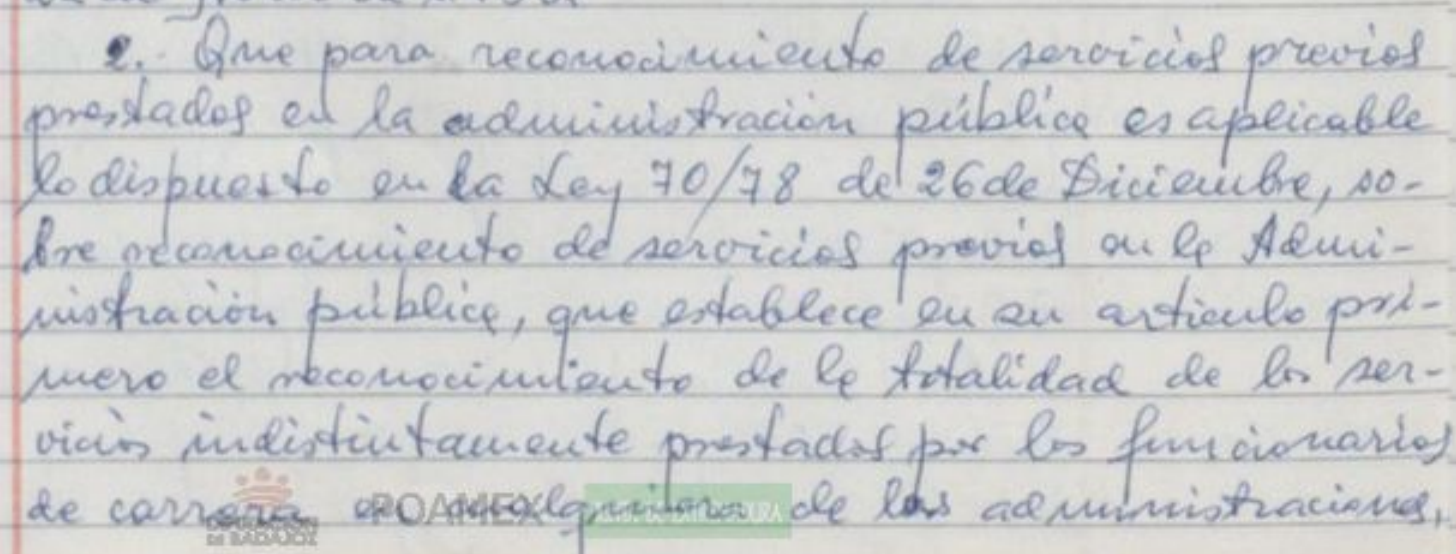 2. Que para reconocimiento de servicios previos
prestados en la administración pública es aplicable
lo dispuesto en la Ley 70/78 de 26 de Diciembre, so-
bre reconocimiento de servicios previos en la Admi-
nistración pública, que establece en su articulo pri-
mero el reconocimiento de la totalidad de los ser-
vicios indistintamente prestados por los funcionarios
de carrera en cualquiera de las administraciones,
POAMEX
DIPUTACIÓN
DE BADAJOZ